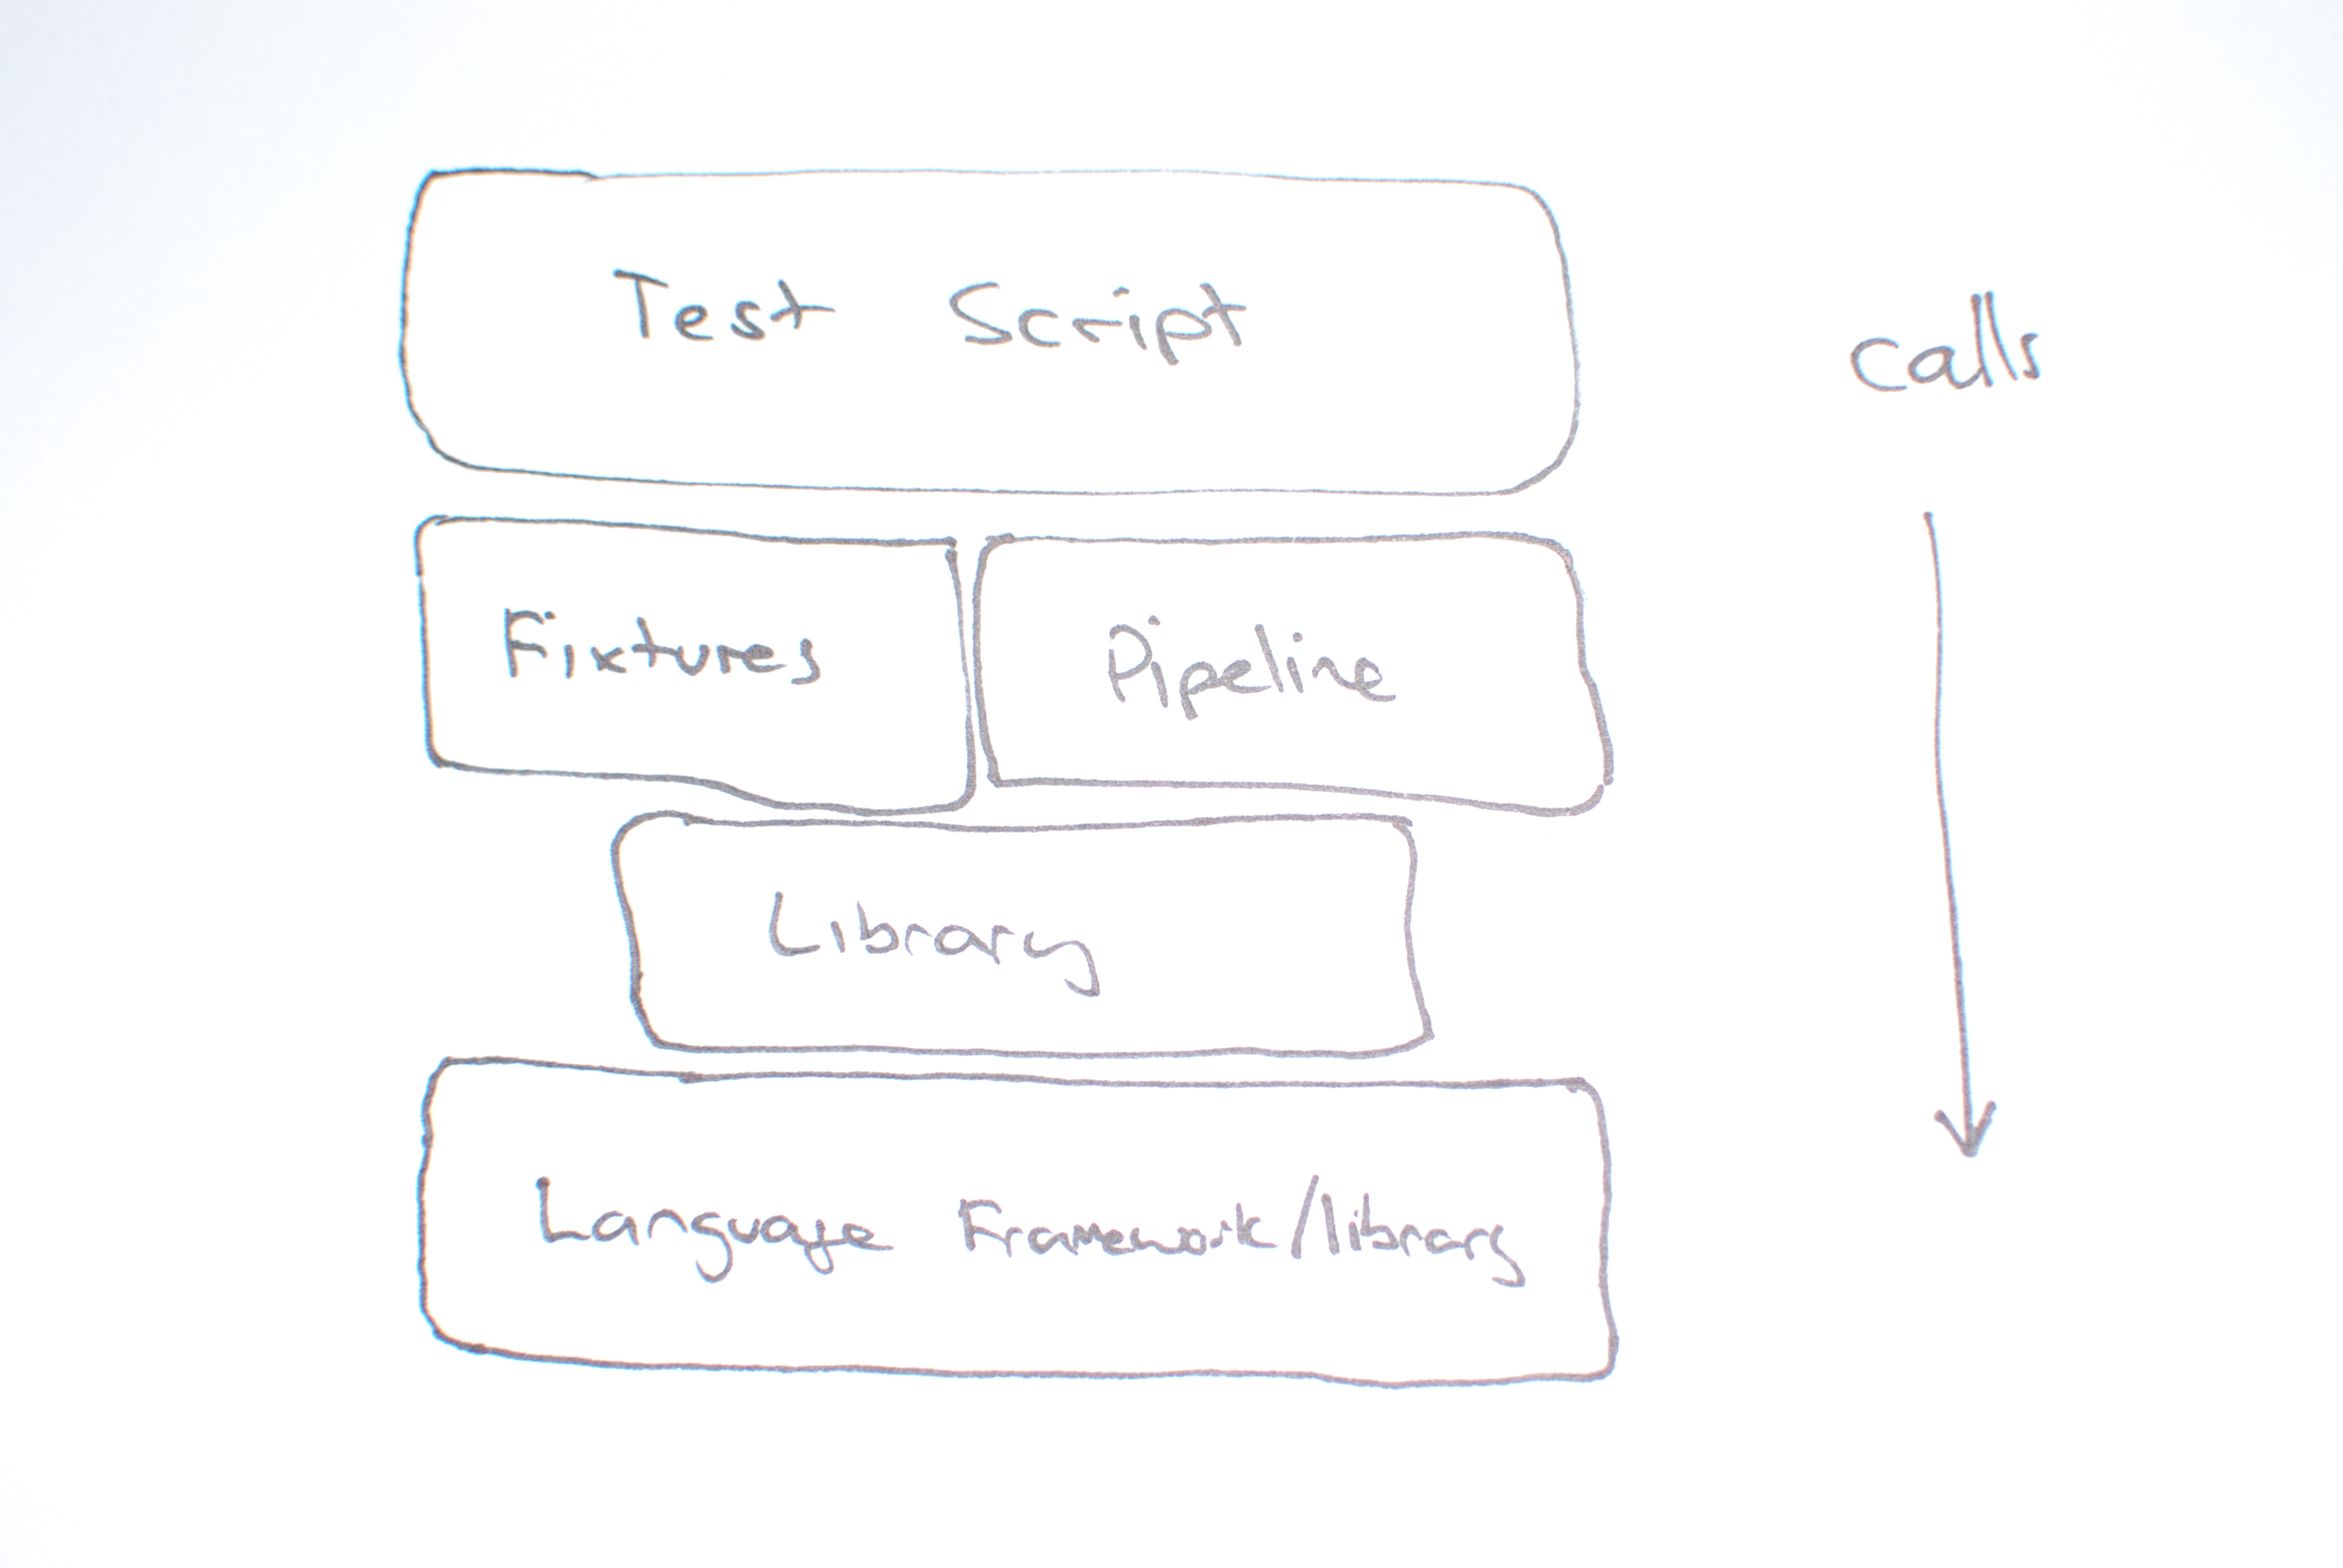 Test Script
calls
Fixtures
Pipeline
Library
Language Framework/library